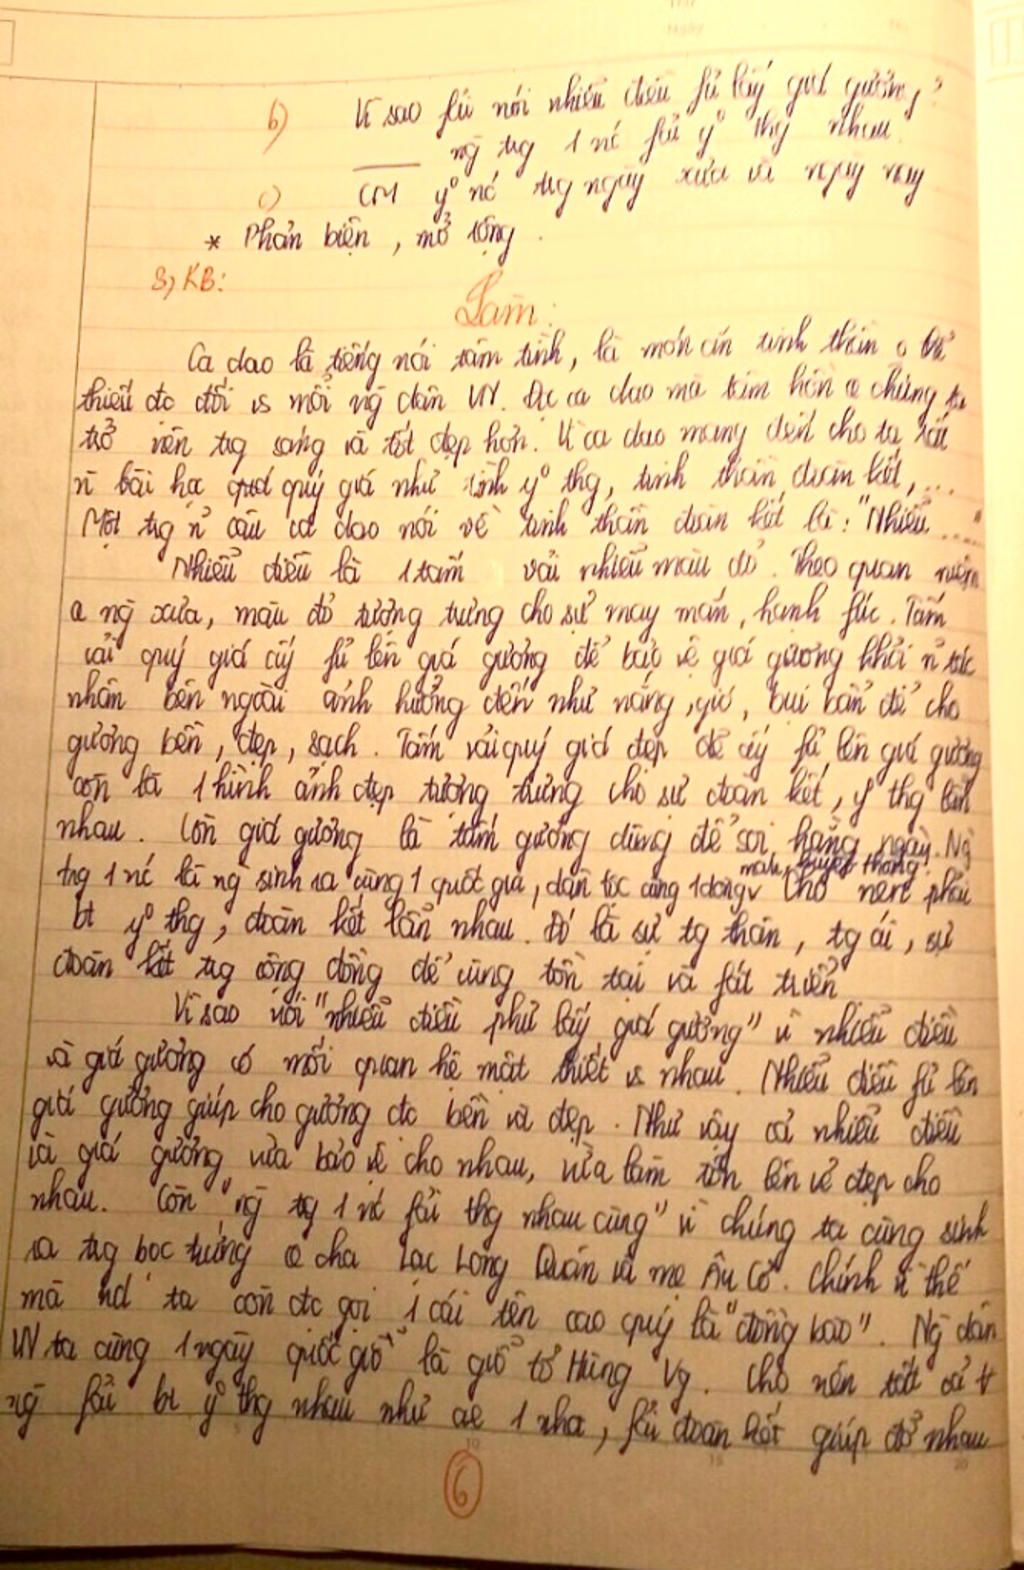 b) Vì sao fải nói nhiễu điều fủ lấy giá gương?
ng trg 1 nc fải yº thg nhau.
c) CM yº nc trg ngày xưa và ngày nay
* Phản biện, mở rộng.
3, KB:
Làm:
Ca dao là tiếng nói tâm tình, là món ăn tinh thần o thể
thiếu đc đối vs mỗi ng dân VN. Đọc ca dao mà tâm hồn chúng ta
trở nên trg sáng và tốt đẹp hơn. Vì ca dao mang đến cho ta rất
n bài học quá quý giá như tình yº thg, tinh thần đoàn kết, ...
Một trg n câu ca dao nói về tinh thần đoàn kết là: "Nhiễu ....."
Nhiễu điều là 1 tấm vải nhiễu màu đỏ. Theo quan niệm
ng xưa, màu đỏ tượng trưng cho sự may mắn, hạnh fúc. Tấm
vải quý giá ấy fủ lên giá gương để bảo vệ giá gương khỏi n tác
nhân bên ngoài ảnh hưởng đến như nắng, gió, bụi bẩn để cho
gương bền, đẹp, sạch. Tấm vải quý giá đẹp đẽ ấy fủ lên giá gương
còn là 1 hình ảnh đẹp tượng trưng cho sự đoàn kết, yº thg lẫn
nhau. Còn giá gương là tấm gương dùng để soi hằng ngày. Ng
trg 1 nc là ng sinh ra cùng 1 quốc gia, dân tộc cùng 1 dòng máu, truyền thống. Cho nên phải
bt yº thg, đoàn kết lẫn nhau. Đó là sự tg thân, tg ái, sự
đoàn kết trg cộng đồng để cùng tồn tại và fát triển
Vì sao nói "nhiễu điều phủ lấy giá gương" vì nhiễu điều
và giá gương có mối quan hệ mật thiết vs nhau. Nhiễu điều fủ lên
giá gương giúp cho gương đc bền và đẹp. Như vậy cả nhiễu điều
và giá gương vừa bảo vệ cho nhau, vừa làm tôn lên vẻ đẹp cho
nhau. Còn "ng trg 1 nc fải thg nhau cùng" vì chúng ta cùng sinh
ra trg bọc trứng cha Lạc Long Quân và mẹ Âu Cơ. Chính vì thế
mà nd ta còn đc gọi 1 cái tên cao quý là "đồng bào". Ng dân
VN ta cùng 1 ngày quốc giỗ là giỗ tổ Hùng Vg. Cho nên tất cả
ng fải bt yº thg nhau như ae 1 nhà, fải đoàn kết giúp đỡ nhau
6